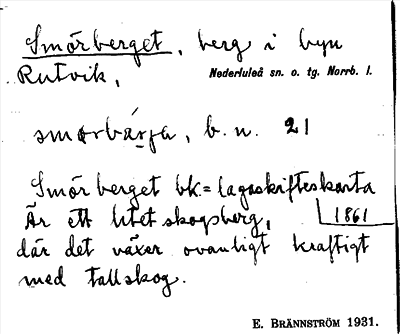 Smörberget, berg i byn
Rutvik,
Nederluleå sn. o. tg. Norrb. l.
smørbärja, b. n. 21
Smörberget bk = lagaskifteskarta
1861
Är ett litet skogsberg,
där det växer ovanligt kraftigt
med tallskog.
E. BRÄNNSTRÖM 1931.